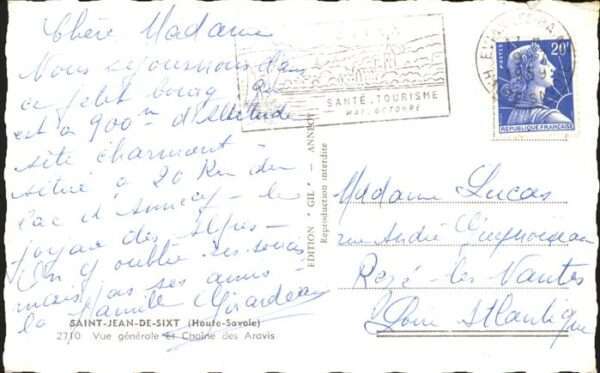 Chère Madame
Nous séjournons dans
ce petit bourg qui
est à 900m d'Altitude
site charmant
situé à 20 Km du
lac d'Annecy - le
joyau des Alpes -
On y oublie ses soucis
mais pas ses amis -
la famille Girardeau
SAINT-JEAN-DE-SIXT (Haute-Savoie)
2710 Vue générale et Chaîne des Aravis
EDITION "GIL" - ANNECY
Reproduction interdite
SANTÉ. TOURISME
MAI. OCTOBRE
POSTES 20F
REPUBLIQUE FRANÇAISE
Madame Lucas
rue André
Rezé-les Nantes
Loire Atlantique